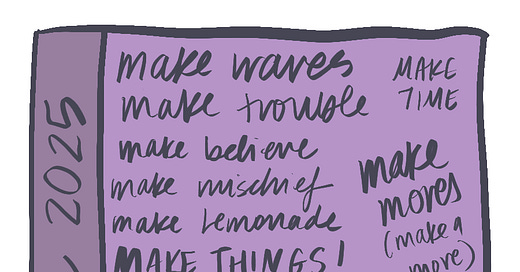 2025
make waves
make trouble
make believe
make mischief
make lemonade
MAKE THINGS!
MAKE
TIME
make
moves
(make a
more)